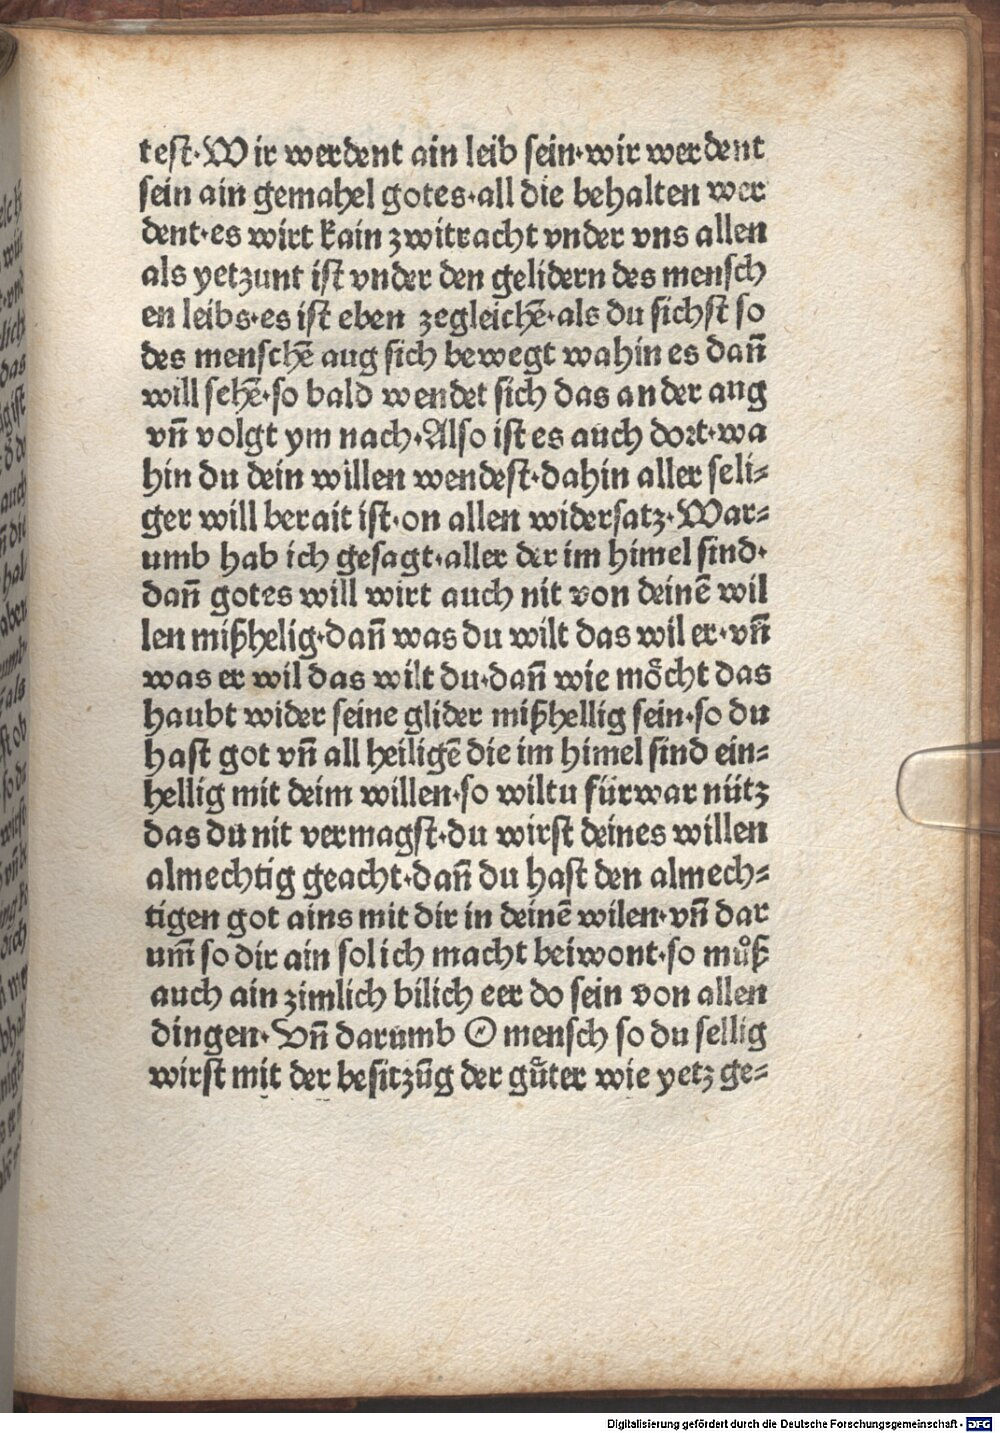 test·Wir werdent ain leib sein·wir werdent
sein ain gemahel gotes·all die behalten wer
dent·es wirt kain zwitracht vnder vns allen
als yetzunt ist vnder den gelidern des mensch
en leibs·es ist eben zegleichē·als du sichst so
des menschē aug sich bewegt wahin es dan̄
will sehē·so bald wendet sich das ander aug
vn̄ volgt ym nach·Also ist es auch dort·wa
hin du dein willen wendest·dahin aller seli⸗
ger will berait ist·on allen widersatz·War⸗
umb hab ich gesagt·aller der im himel sind·
dan̄ gotes will wirt auch nit von deinē wil
len mißhelig·dan̄ was du wilt das wil er·vn̄
was er wil das wilt du·dan̄ wie moͤcht das
haubt wider seine glider mißhellig sein·so du
hast got vn̄ all heiligē die im himel sind ein⸗
hellig mit deim willen·so wiltu fürwar nütz
das du nit vermagst·du wirst deines willen
almechtig geacht·dan̄ du hast den almech⸗
tigen got ains mit dir in deinē wilen·vn̄ dar
um̄ so dir ain solich macht beiwont·so můß
auch ain zimlich bilich eer do sein von allen
dingen·Vn̄ darumb O mensch so du sellig
wirst mit der besitzūg der guͤter wie yetz ge⸗
Digitalisierung gefördert durch die Deutsche Forschungsgemeinschaft - DFG